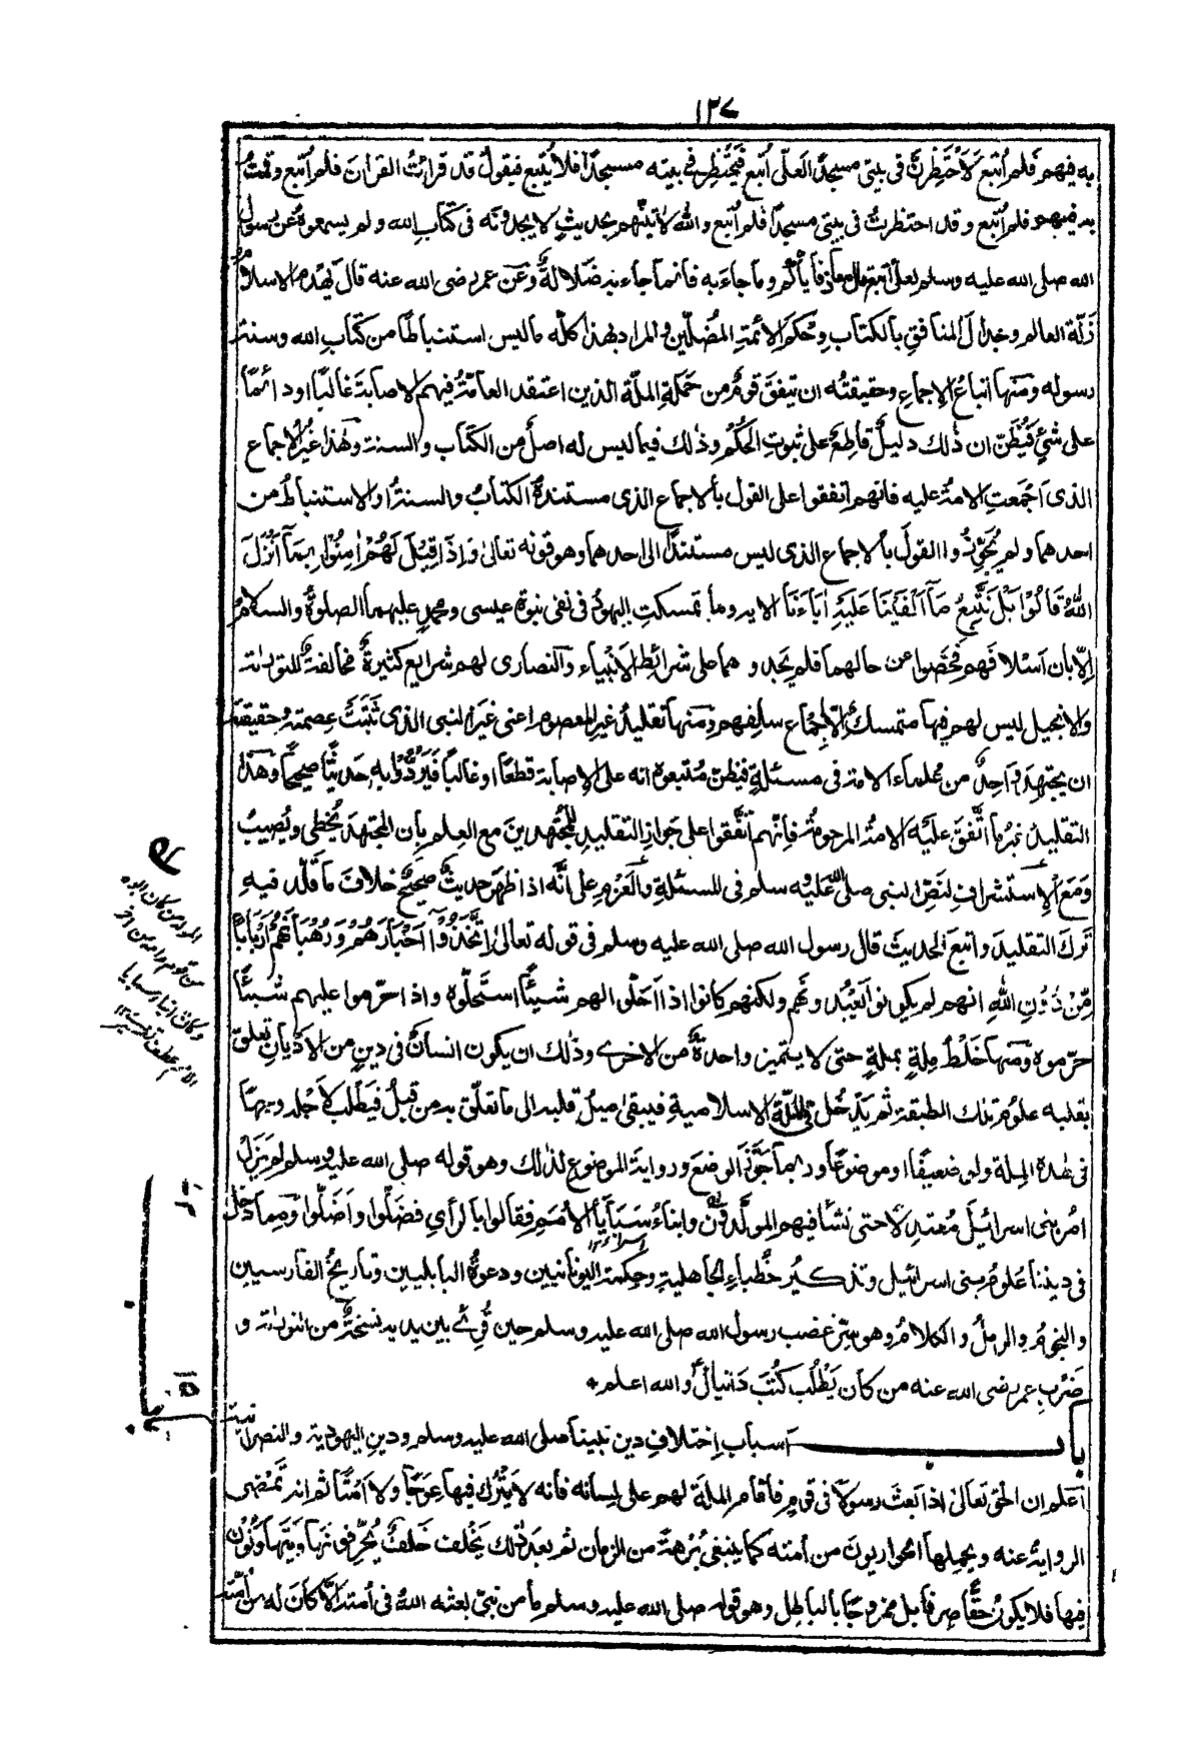 ١٢٧
به فيهم فلم أتبع لأحتظرن في بيتي مسجدًا لعلّي أتبع فيحتظر في بيته مسجدًا فلا يتبع فيقول قد قرأت القرآن فلم أتبع وقمت
به فيهم فلم أتبع وقد احتظرت في بيتي مسجدًا فلم أتبع والله لآتينهم بحديث لا يجدونه في كتاب الله ولم يسمعوه عن رسول
الله صلى الله عليه وسلم لعلي أتبع قال معاذ فإياكم وما جاء به فإنما جاء به ضلالة وعن عمر رضى الله عنه قال يهدم الاسلام
زلّة العالم وجدال المنافق بالكتاب وحكم الائمة المضلّين والمراد بهذا كله ما ليس استنباطا من كتاب الله وسنة
رسوله ومنها اتباع الاجماع وحقيقته ان يتفق قوم من حملة الملّة الذين اعتقد العامّة فيهم الاصابة غالبًا او دائمًا
على شئ فيظن ان ذلك دليل قاطع على ثبوت الحكم وذلك فيما ليس له اصل من الكتاب والسنة وهذا غير الاجماع
الذى اجمعت الامة عليه فانهم اتفقوا على القول بالاجماع الذى مستنده الكتاب والسنة او الاستنباط من
احدهما ولم يجوّزوا القول بالاجماع الذى ليس مستندًا الى احدهما وهو قوله تعالى وَاِذَا قِيْلَ لَهُمْ اٰمِنُوْا بِمَآ اَنْزَلَ
اللّٰهُ قَالُوْا بَلْ نَتَّبِعُ مَآ اَلْفَيْنَا عَلَيْهِ اٰبَآءَنَا الاية وما تمسكت اليهود في نفى نبوة عيسى ومحمد عليهما الصلوة والسلام
الّا بان اسلافهم فحصوا عن حالهما فلم يجدوهما على شرائط الانبياء والنصارى لهم شرايع كثيرة مخالفة للتورٰىة
والانجيل ليس لهم فيها متمسك الّا اجماع سلفهم ومنها تقليد غير المعصوم اعنى غير النبى الذى ثبتت عصمته وحقيقته
ان يجتهد واحد من علماء الامة فى مسئلة فيظن متبعوه انه على الاصابة قطعًا او غالبًا فيردّوا به حديثًا صحيحًا وهذا
التقليد غير ما اتّفق عليه الامة المرحومة فانّهم اتّفقوا على جواز التقليد للمجتهدين مع العلم بان المجتهد يخطى ويصيب
ومع الاستشراف لنصّ النبى صلى الله عليه وسلم فى المسئلة والعزم على انّه اذا ظهر حديث صحيح خلاف ما قلّد فيه
ترك التقليد واتبع الحديث قال رسول الله صلى الله عليه وسلم فى قوله تعالى اِتَّخَذُوْٓا اَحْبَارَهُمْ وَرُهْبَانَهُمْ اَرْبَابًا
مِّنْ دُوْنِ اللّٰهِ انهم لم يكونوا يعبدونهم ولكنهم كانوا اذا احلّوا لهم شيئًا استحلّوه واذا حرّموا عليهم شيئًا
حرّموه ومنها خلط ملة بملة حتى لا يتميز واحدة من الاخرے وذلك ان يكون انسان فى دين من الاديان تعلق
بقلبه علوم تلك الطبقة ثم يدخل فى الملّة الاسلامية فيبقى ميل قلبه الى ما تعلّق به من قبل فيطلب لاجله وجهًا
فى هذه الملة ولو ضعيفًا او موضوعًا وربما جوّز الوضع ورواية الموضوع لذلك وهو قوله صلى الله عليه وسلم لم يزل
امر بنى اسرائيل معتدلًا حتى نشأ فيهم المولّدون وابناء سبايا الامم فقالوا بالرأى فضلّوا واضلّوا ومما دخل
فى ديننا علوم بنى اسرائيل وتذكير خطباء الجاهلية وحكمة اليونانيين ودعوة البابليين وتاريخ الفارسيين
والنجوم والرمل والكلام وهو سِرّ غضب رسول الله صلى الله عليه وسلم حين قُرِئَ بين يديه نسخة من التورٰىة و
ضرب عمر رضى الله عنه من كان يطلب كتب دانيال والله اعلم
باب اسباب اختلاف دين نبينا صلى الله عليه وسلم ودين اليهودية والنصرانية
اعلم ان الحق تعالى اذا بعث رسولًا فى قوم فأقام الملة لهم على لسانه فانه لا يترك فيها عوجًا ولا امتًا ثم انه تمضى
الرواية عنه ويحملها الحواريون من أمته كما ينبغى برهة من الزمان ثم بعد ذلك يخلف خلف يحرّفونها ويتهاونون
فيها فلا يكون حقًّا صرفًا بل ممزوجًا بالباطل وهو قوله صلى الله عليه وسلم ما من نبىّ بعثه الله فى أمته الّا كان له من أمته